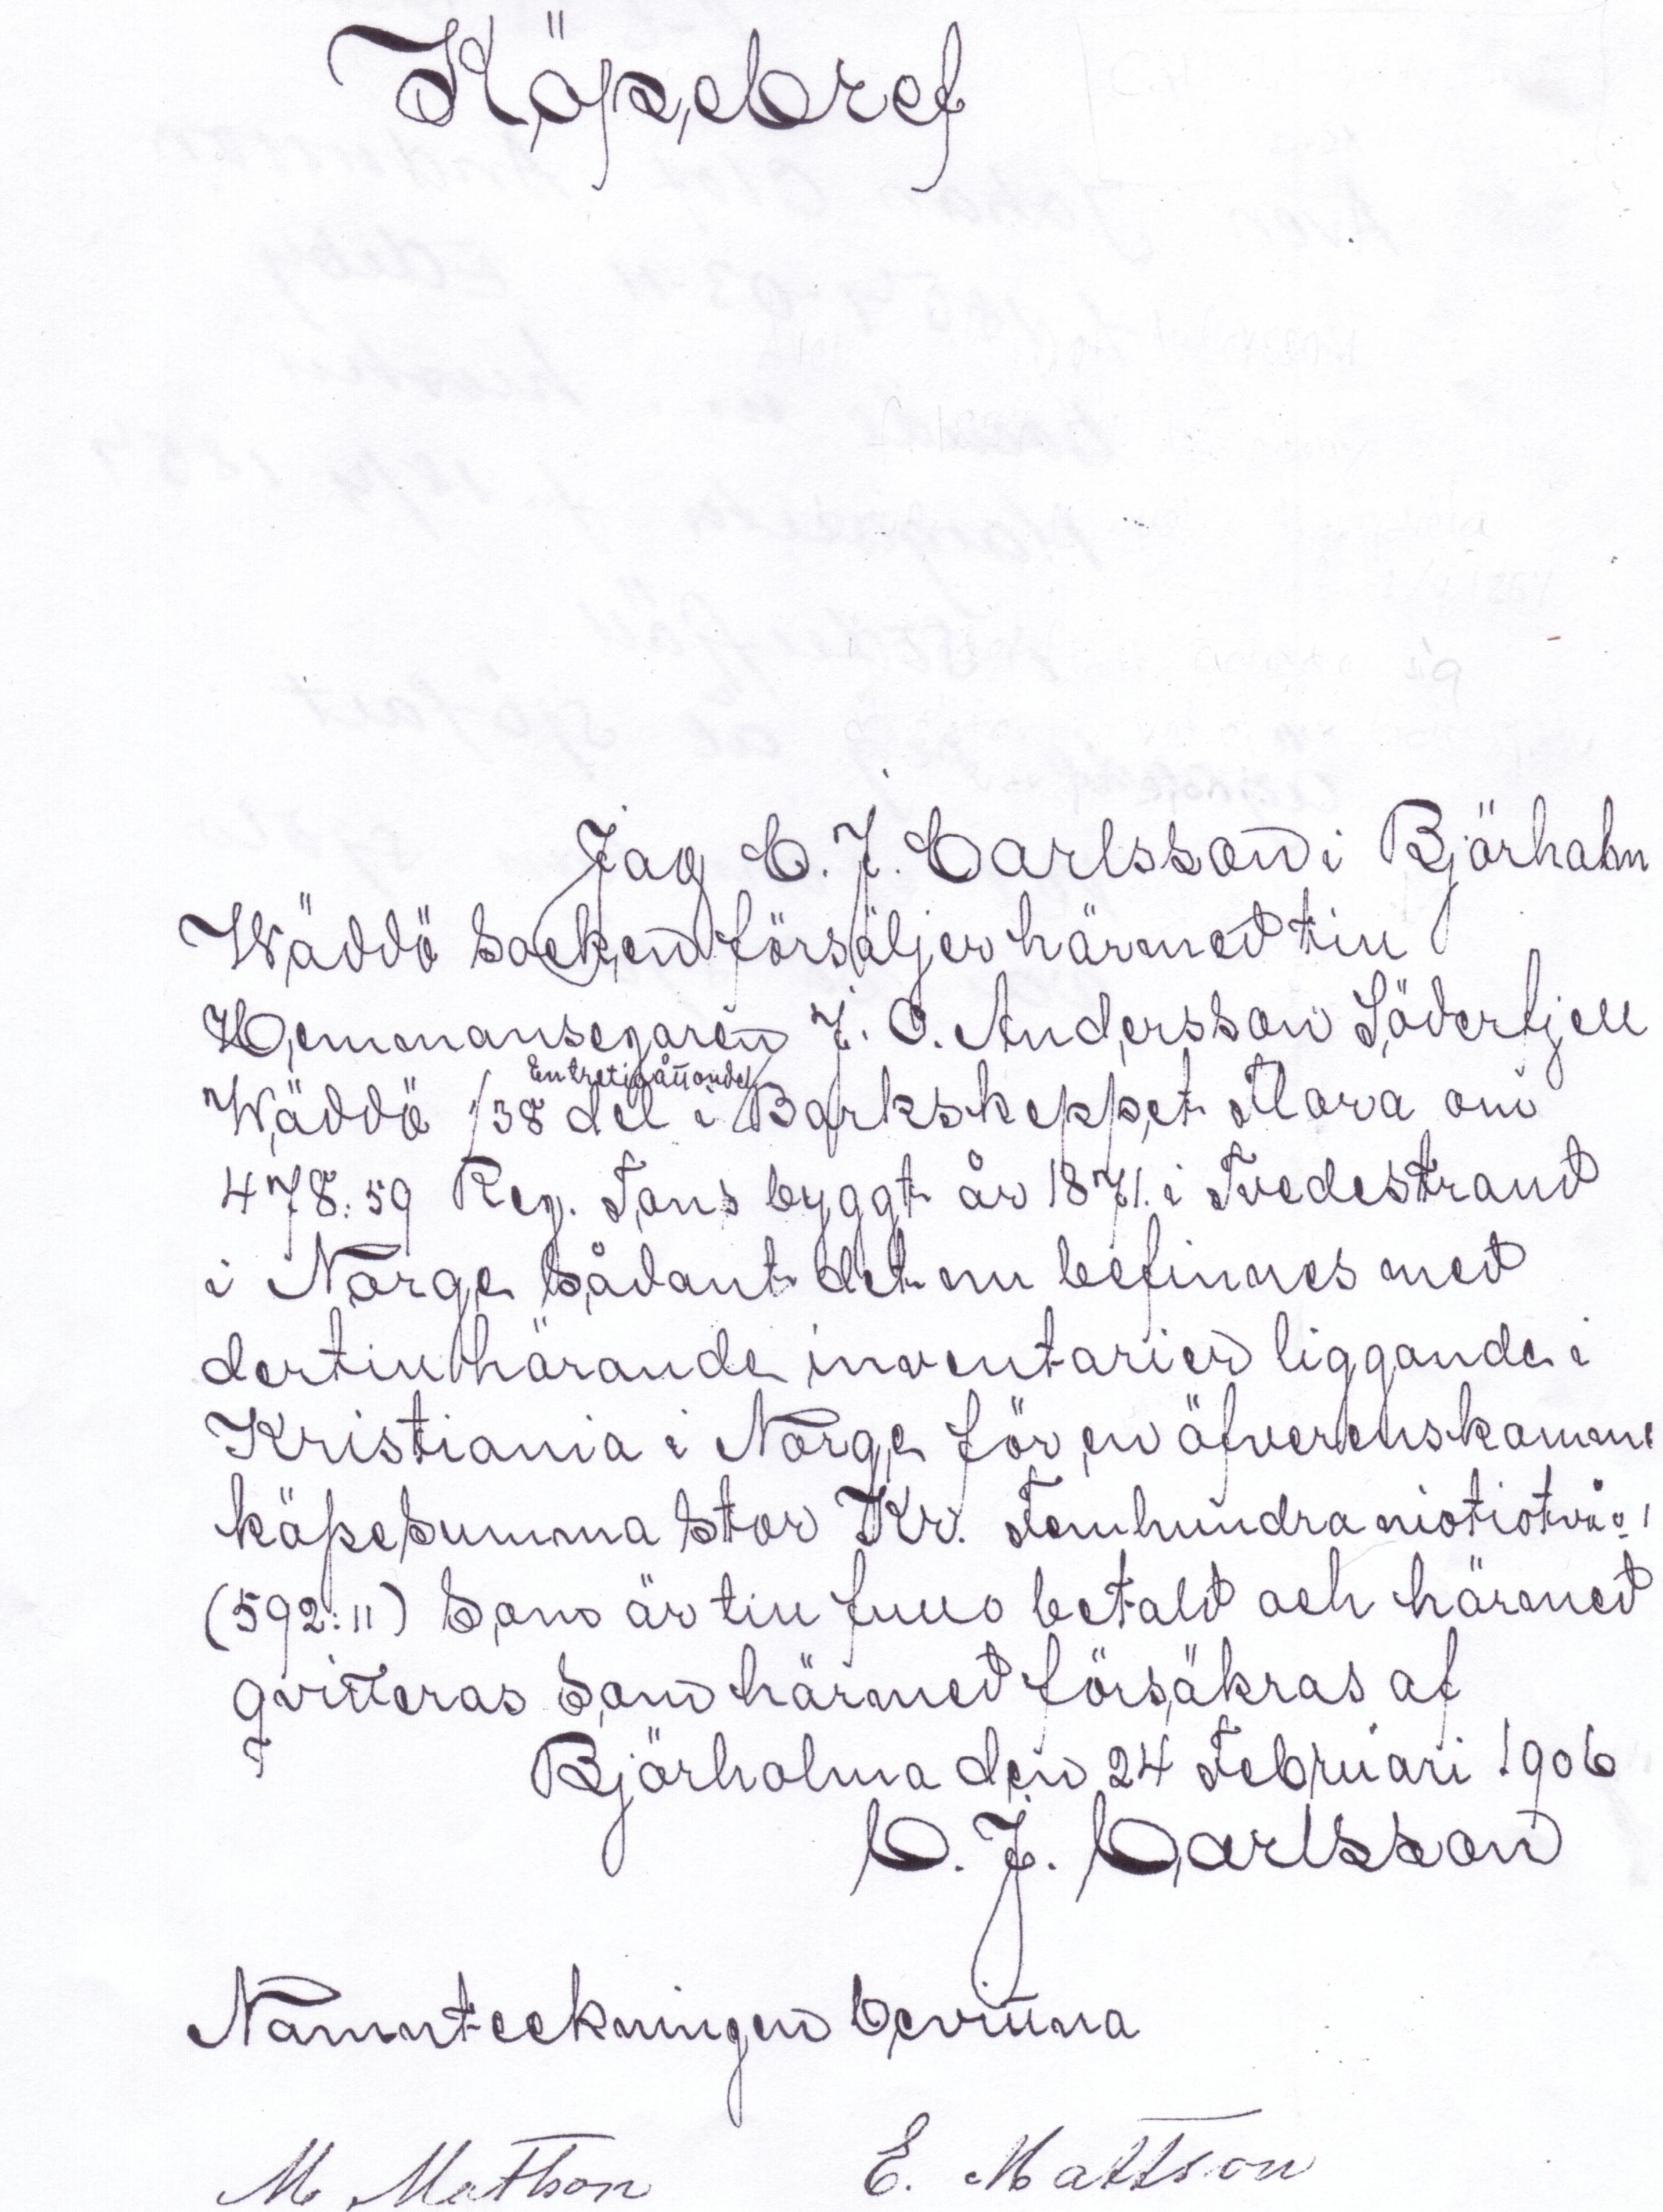 Köpebref
Jag C. J. Carlsson i Björholm
Wäddö Socken försäljer härmed till
Hemmansegaren J. O. Andersson Söderfjell
Entretiåttondel
Wäddö 1/38 del i Barkskeppet Mora om
478:59 Reg. Tons byggt år 1871 i Tvedestrand
i Norge Sådant det nu befinnes med
dertillhörande inventarier liggande i
Kristiania i Norge för en öfverenskomme
köpesumma Stor Kr. Femhundraniotiotvå
(592:11) Som är till fullo betald och härmed
qvitteras Som härmed försäkras af
Björholma den 24 Februari 1906
C. J. Carlsson
Namnteckningen bevittna
M Mattson E. Mattson